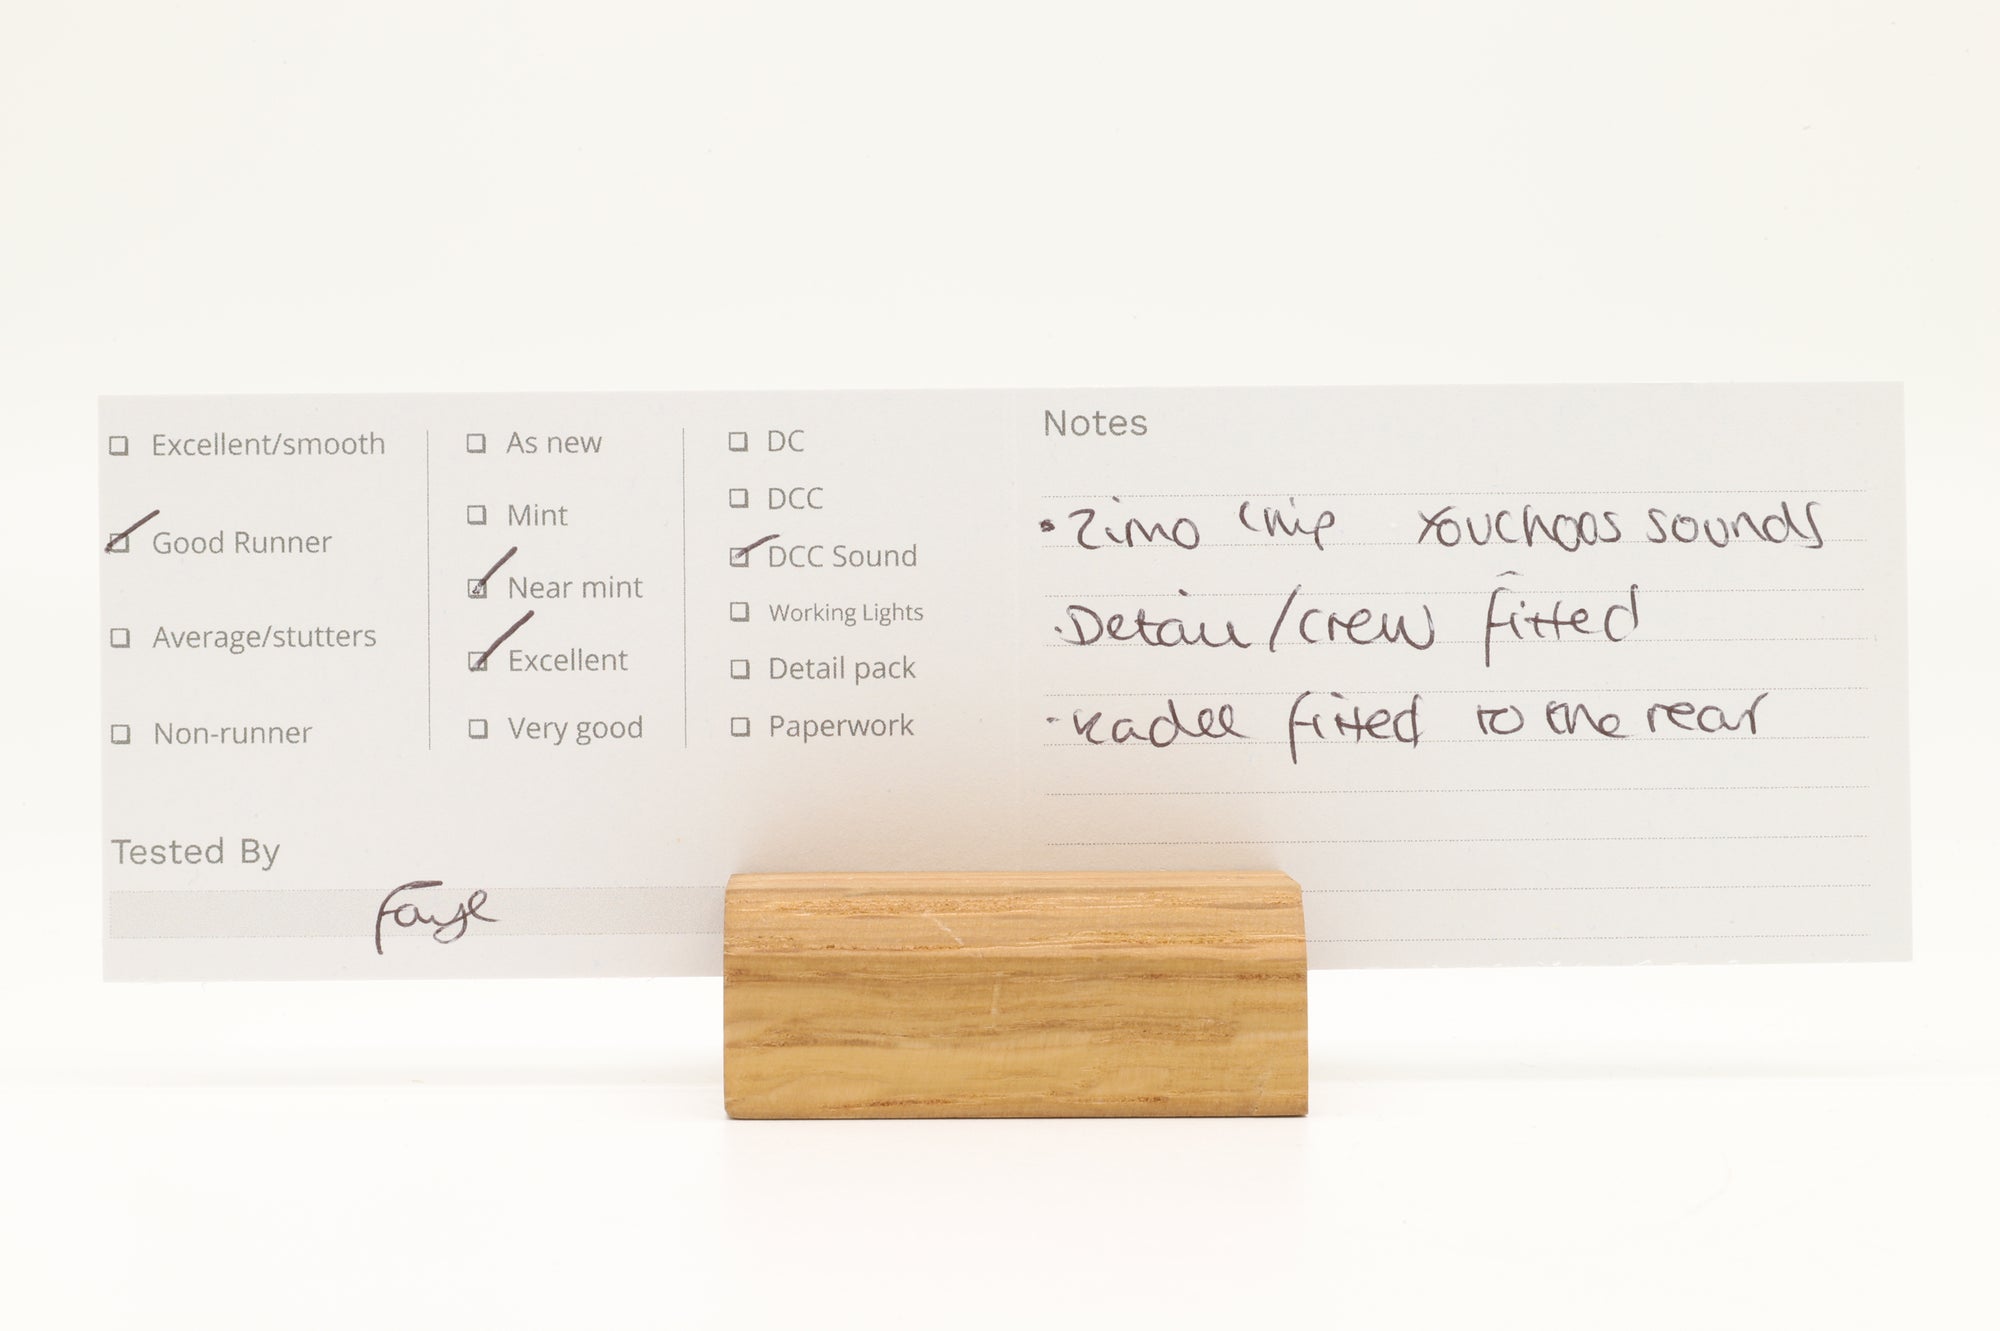 Excellent/smooth
Good Runner
Average/stutters
Non-runner
As new
Mint
Near mint
Excellent
Very good
DC
DCC
DCC Sound
Working Lights
Detail pack
Paperwork
Tested By
Faye
Notes
• Zimo Chip Youchoos sounds
· Detail/crew fitted
- Kadee fitted to the rear